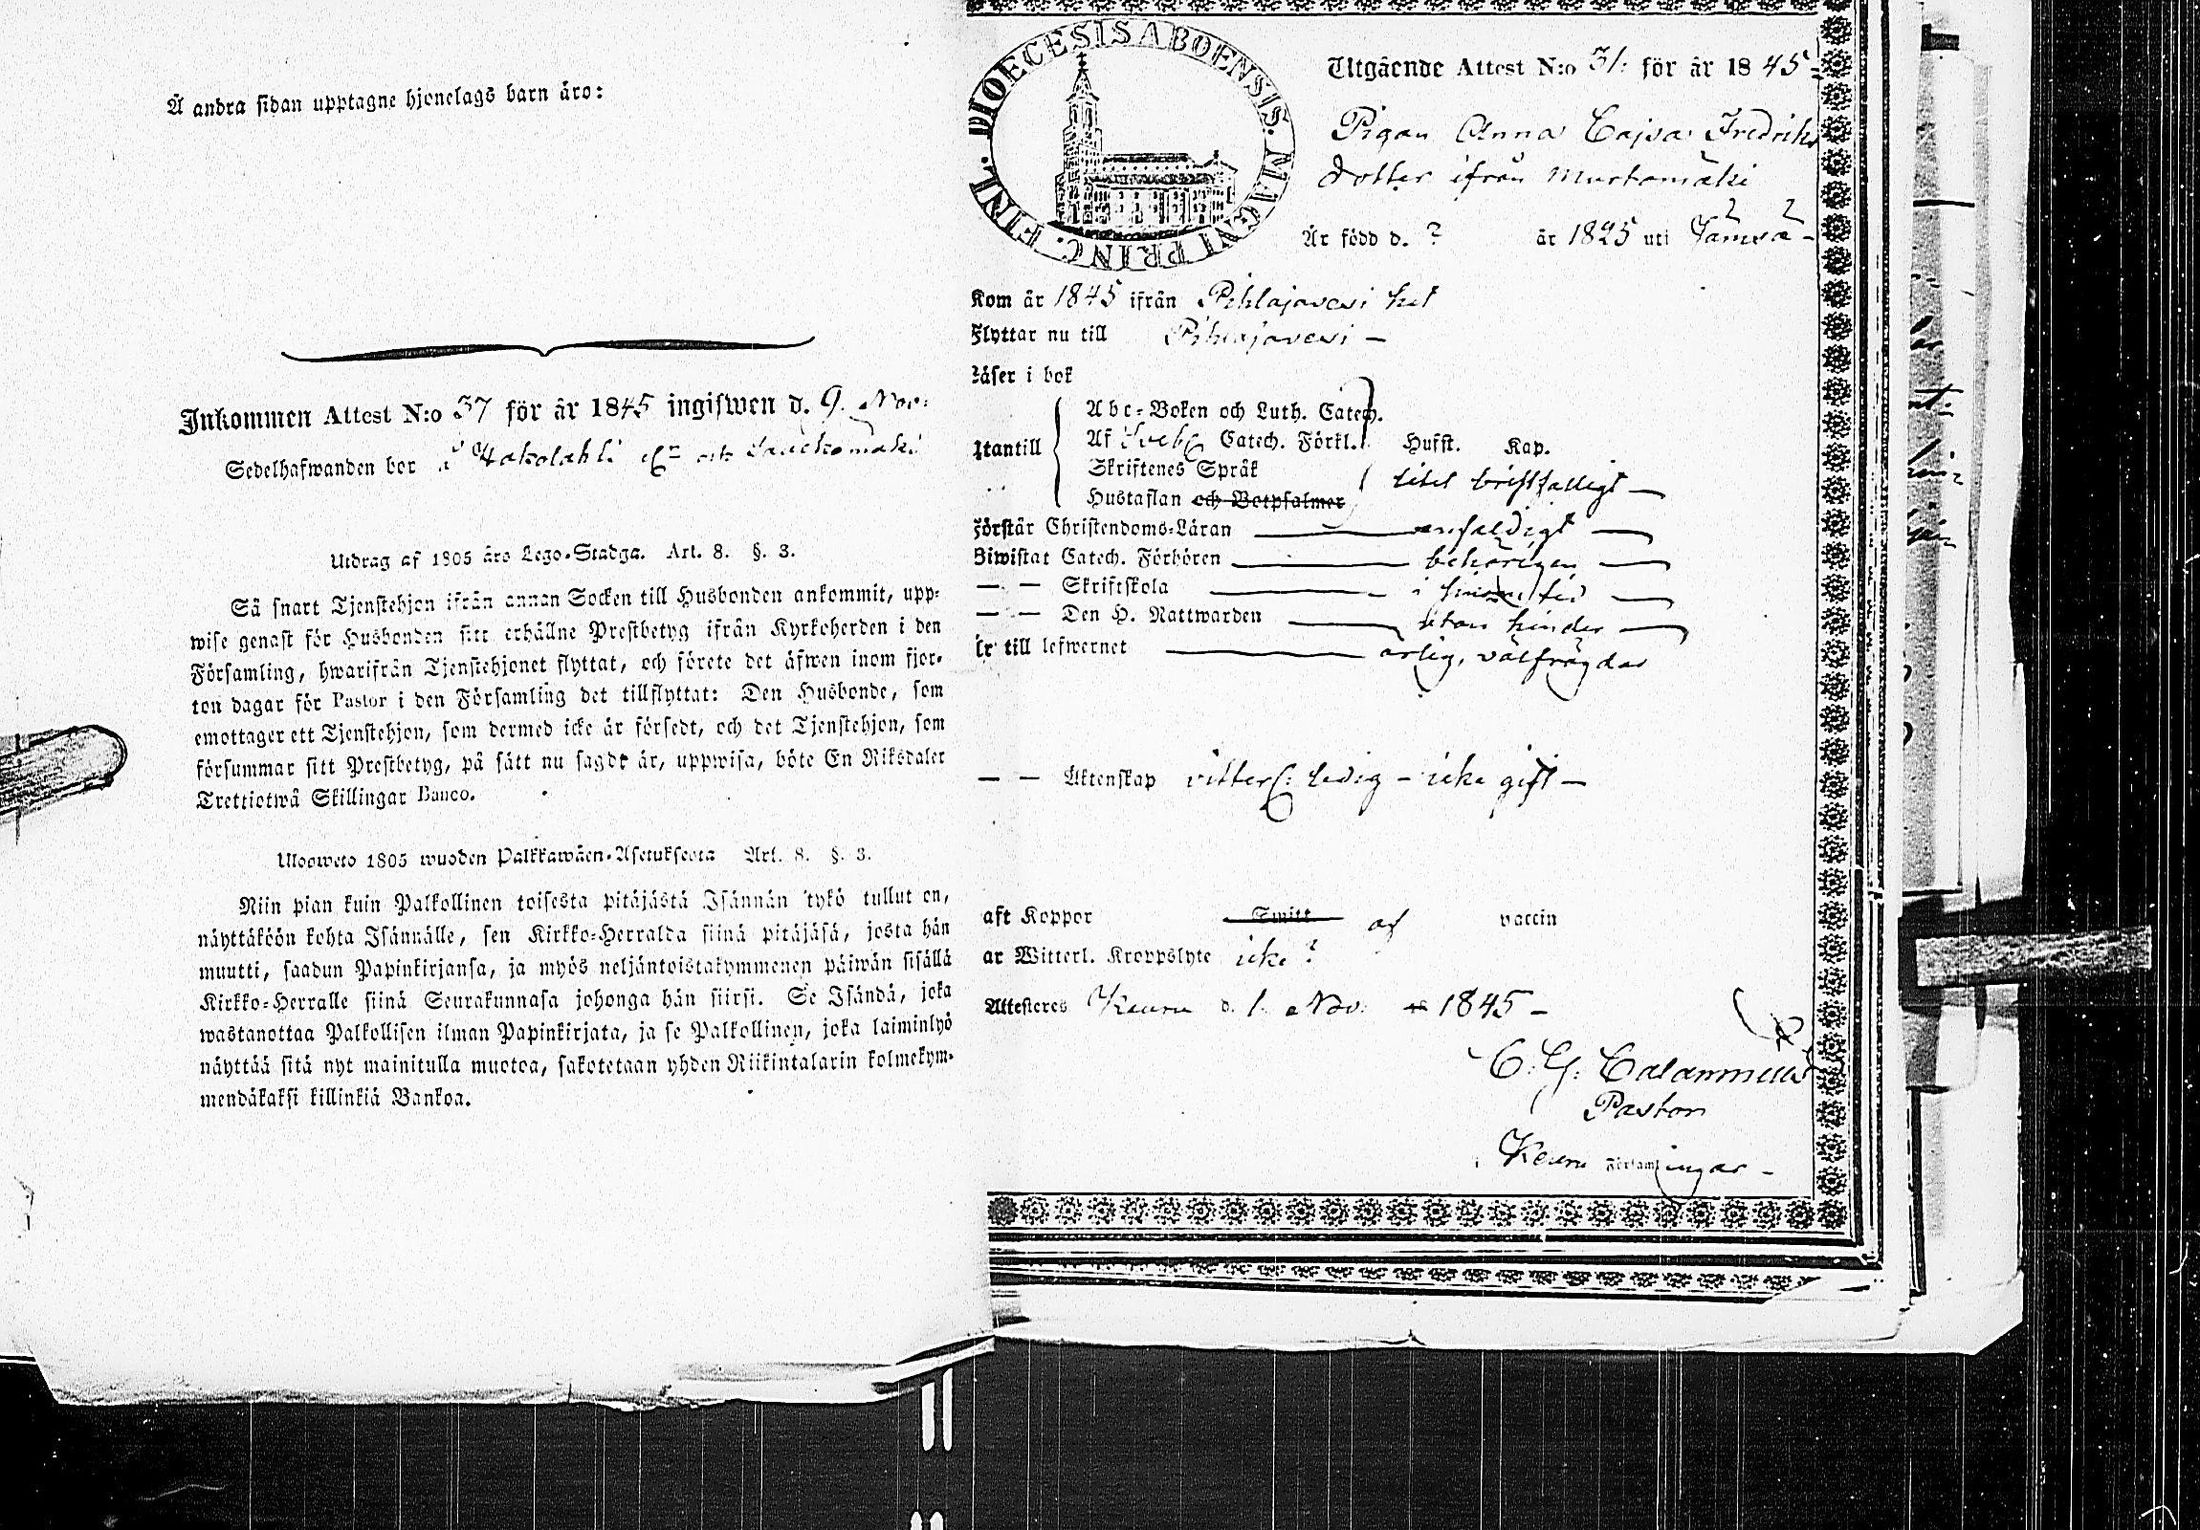 Å andra sidan upptagne hjonelags barn äro:
Inkommen Attest N:o 37 för år 1845 ingifwen d. 9. Nov:
Sedelhafwanden bor å Hakolahti
Utdrag af 1805 års Lego-Stadga. Art. 8. §. 3.
Så snart Tjenstehjon ifrån annan Socken till Husbonden ankommit, upp-
wise genast för Husbonden sitt erhållne Prestbetyg ifrån Kyrkoherden i den
Församling, hwarifrån Tjenstehjonet flyttat, och förete det äfwen inom fjor-
ton dagar för Pastor i den Församling det tillflyttat: Den Husbonde, som
emottager ett Tjenstehjon, som dermed icke är försedt, och det Tjenstehjon, som
försummar sitt Prestbetyg, på sätt nu sagdt är, uppwisa, böte En Riksdaler
Trettiotwå Skillingar Banco.
Uloosweto 1805 wuoden Palkkawäen-Asetuksesta Art. 8. §. 3.
Niin pian kuin Palkollinen toisesta pitäjästä Isännän tykö tullut on,
näyttäköön kohta Isännälle, sen Kirkko-Herralda siinä pitäjäsä, josta hän
muutti, saadun Papinkirjansa, ja myös neljäntoistakymmenen päiwän sisällä
Kirkko-Herralle siinä Seurakunnasa johonga hän siirsi. Se Isändä, joka
wastanottaa Palkollisen ilman Papinkirjata, ja se Palkollinen, joka laiminlyö
näyttää sitä nyt mainitulla muotoa, sakotetaan yhden Riikintalarin kolmekym-
mendäkaksi killinkiä Bankoa.
DIOECESIS ABOENSIS. MAGNI PRINC. FINL.
Utgående Attest N:o 31: för år 1845
Pigan Anna Cajsa Fredriks
dotter ifrån Murtomäki
Är född d. ? år 1825 uti Jämsä
Kom år 1845 ifrån Pihlajavesi hit
Flyttar nu till Pihlajavesi
Läser i bok
Utantill
Abc-Boken och Luth. Catech.
Af Sveb Catech. Förkl. Hufst. Kap.
Skriftenes Språk
Hustaflan och Botpsalmer
titel bristfälligt
Förstår Christendoms-Läran enfaldigt
Biwistat Catech. Förhören behörigen
— — Skriftskola i sinom tid
— — Den H. Nattwarden utan hinder
Är till lefwernet ärlig, välfrägdad
— — Äktenskap vitterl: ledig – icke gift –
aft Koppor Smitt af vaccin
ar Witterl. Kroppslyte icke ?
Attesteres Keuru d. 1. Nov: 1845 –
C: G: Calamnius
Pastor
Keuru Församlingar –